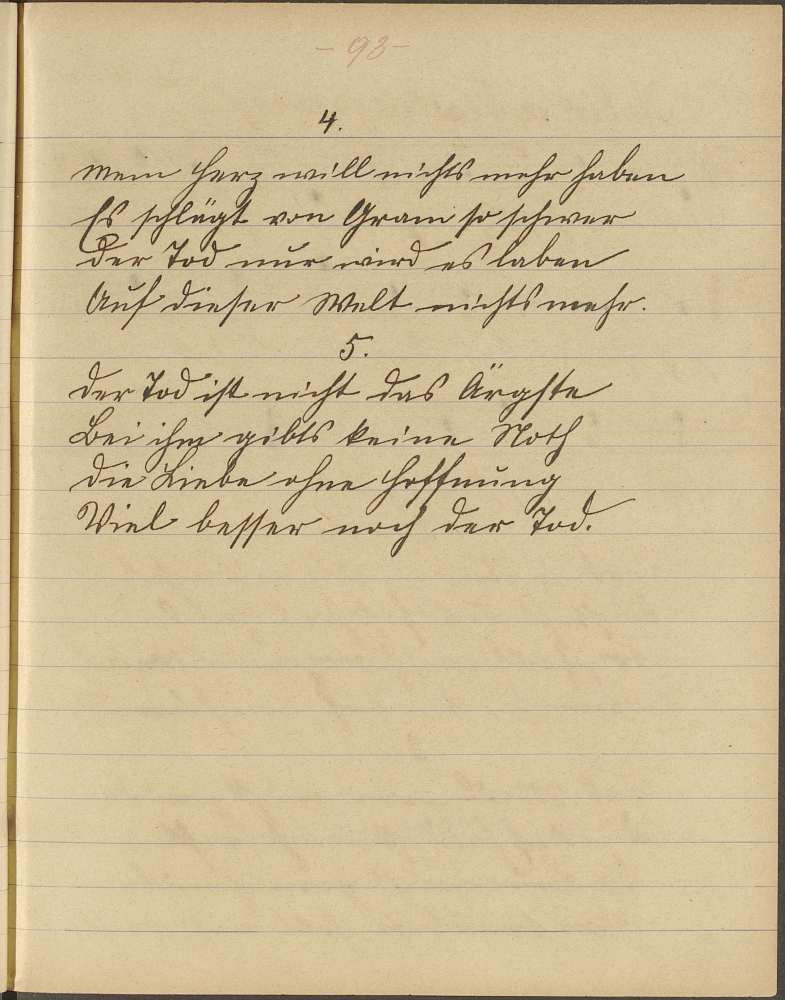 - 93 -
4.
Mein Herz will nichts mehr haben
Es schlägt von Gram so schwer
Der Tod nur wird es laben
Auf dieser Welt nichts mehr.
5.
Der Tod ist nicht das Ärgste
Bei ihm gibts keine Noth
Die Liebe ohne Hoffnung
Viel besser noch der Tod.